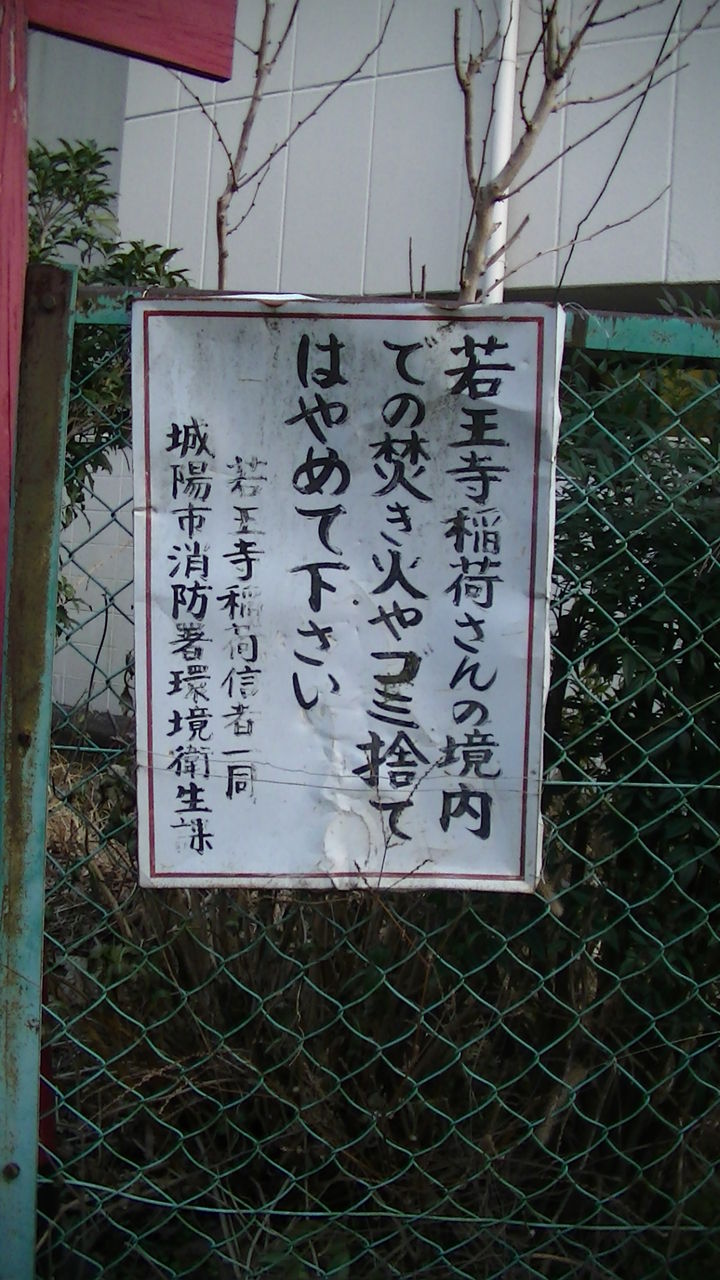 若王寺稲荷さんの境内
での焚き火やゴミ捨て
はやめて下さい
若王寺稲荷信者一同
城陽市消防署環境衛生課